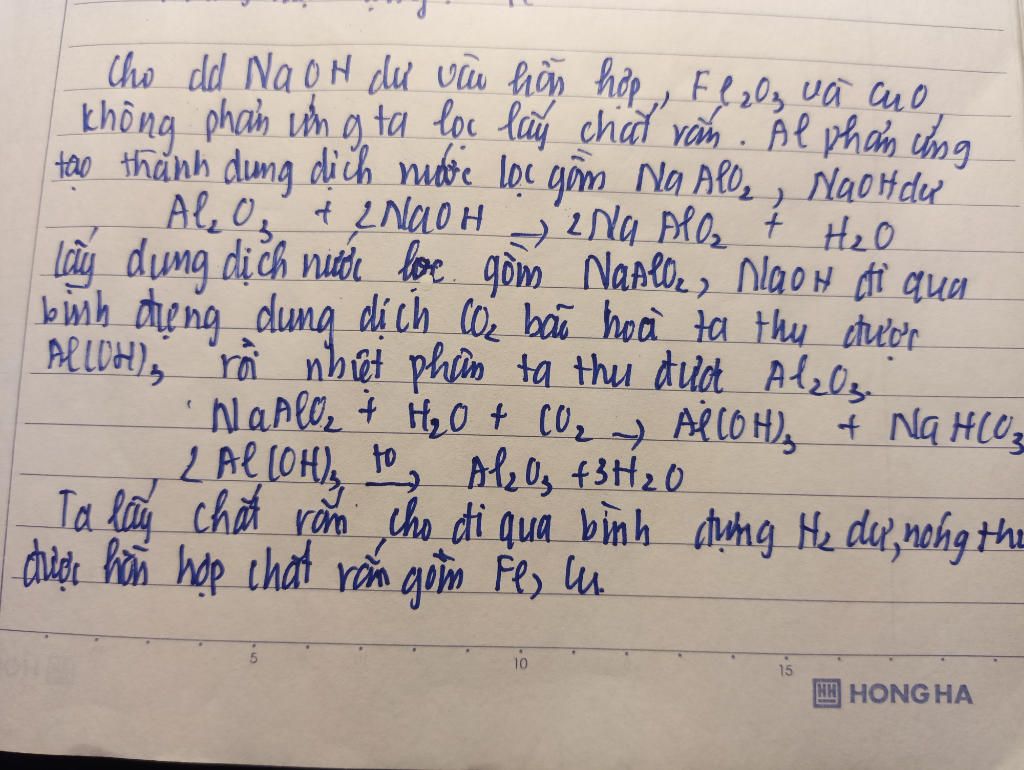 Cho dd NaOH dư vào hỗn hợp, Fe₂O₃ và CuO
không phản ứng ta lọc lấy chất rắn. Al phản ứng
tạo thành dung dịch nước lọc gồm NaAlO₂, NaOH dư
Al₂O₃ + 2NaOH → 2NaAlO₂ + H₂O
lấy dung dịch nước lọc gồm NaAlO₂, NaOH đi qua
bình đựng dung dịch CO₂ bão hoà ta thu được
Al(OH)₃ rồi nhiệt phân ta thu được Al₂O₃.
NaAlO₂ + H₂O + CO₂ → Al(OH)₃ + NaHCO₃
2Al(OH)₃ t⁰→ Al₂O₃ + 3H₂O
Ta lấy chất rắn cho đi qua bình đựng H₂ dư, nóng thu
được hỗn hợp chất rắn gồm Fe, Cu.
5 10 15
HONG HA